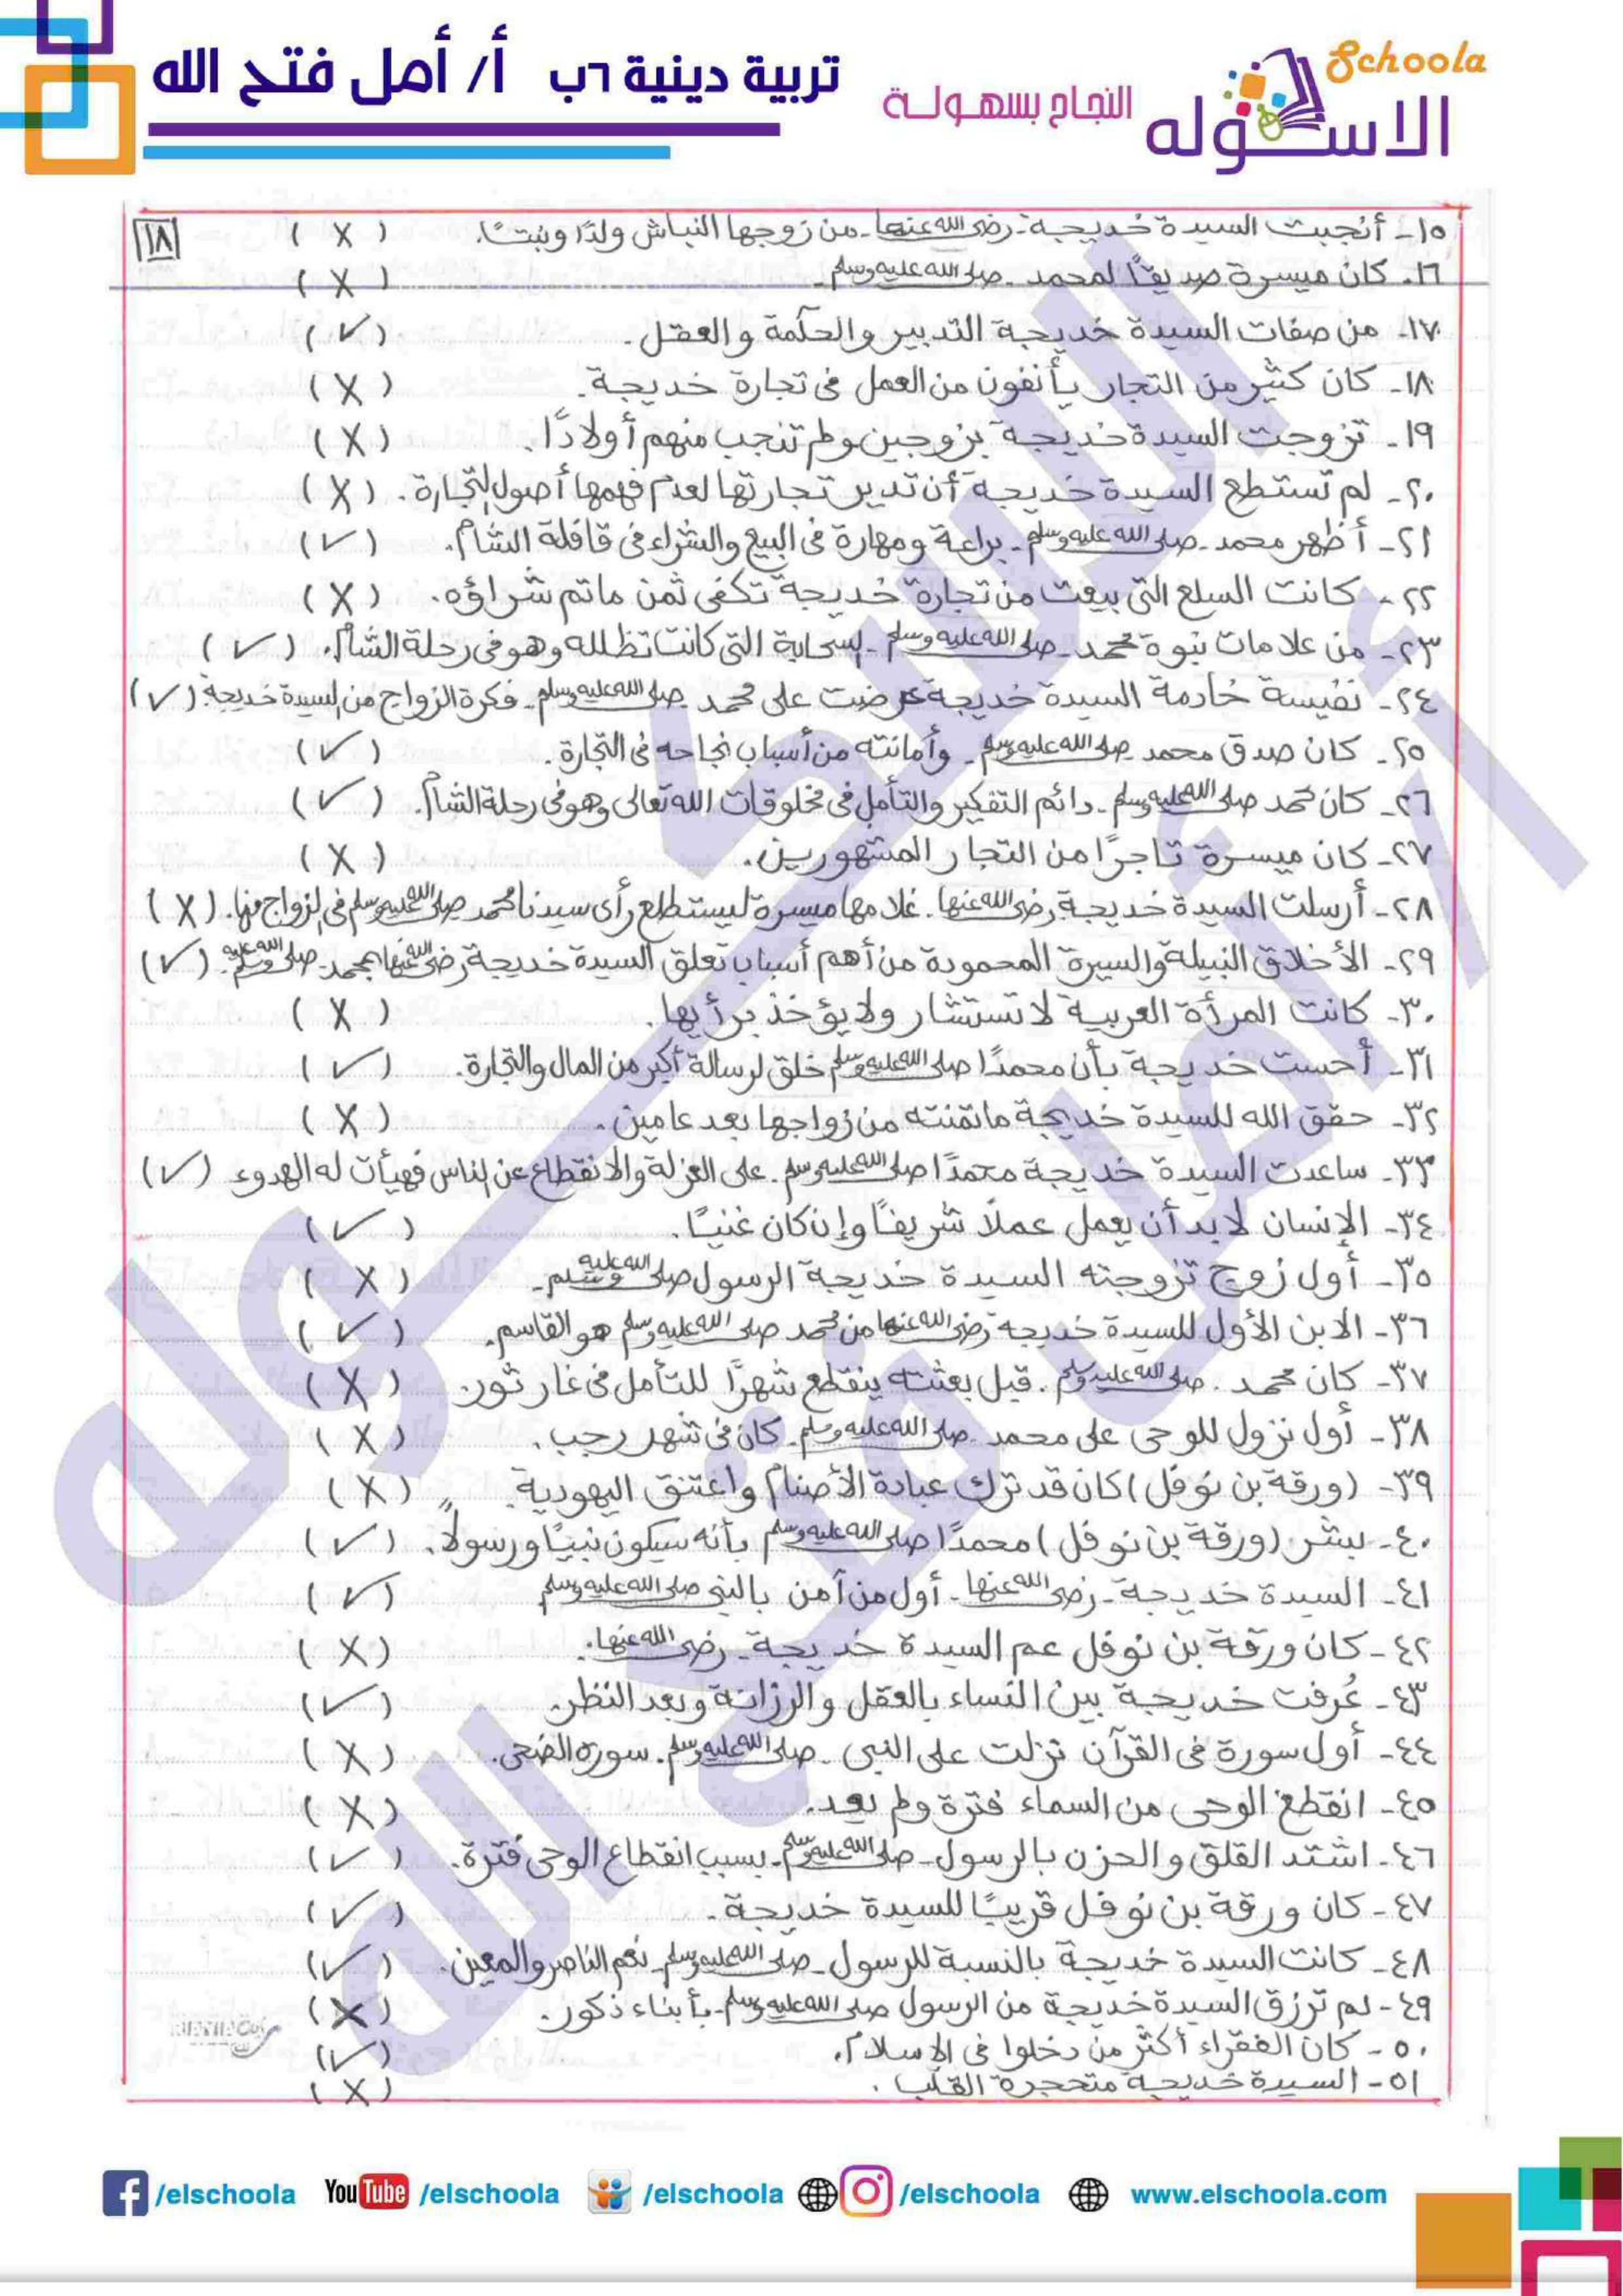 Schoola
الاسكوله
النجاح بسهولة
تربية دينية ٦ب أ/ أمل فتح الله
١٨
١٥- أنجبت السيدة خديجة - رضى الله عنها - من زوجها النباش ولدًا وبنتًا. (X)
١٦- كان ميسرة صديقًا لمحمد - صلى الله عليه وسلم - (X)
١٧- من صفات السيدة خديجة التدبير والحكمة والعقل. (✓)
١٨- كان كثير من التجار يأنفون من العمل فى تجارة خديجة. (X)
١٩- تزوجت السيدة خديجة بزوجين ولم تنجب منهم أولادًا. (X)
٢٠- لم تستطع السيدة خديجة أن تدير تجارتها لعدم فهمها أصول التجارة. (X)
٢١- أظهر محمد - صلى الله عليه وسلم - براعة ومهارة فى البيع والشراء فى قافلة الشام. (✓)
٢٢- كانت السلع التى بيعت من تجارة خديجة تكفى ثمن ماتم شراؤه. (X)
٢٣- من علامات نبوة محمد - صلى الله عليه وسلم - السحابة التى كانت تظلله وهو فى رحلة الشام. (✓)
٢٤- نفيسة خادمة السيدة خديجة عرضت على محمد صلى الله عليه وسلم - فكرة الزواج من السيدة خديجة. (✓)
٢٥- كان صدق محمد صلى الله عليه وسلم - وأمانته من أسباب نجاحه فى التجارة. (✓)
٢٦- كان محمد صلى الله عليه وسلم - دائم التفكير والتأمل فى مخلوقات الله تعالى وهو فى رحلة الشام. (✓)
٢٧- كان ميسرة تاجرًا من التجار المشهورين. (X)
٢٨- أرسلت السيدة خديجة رضى الله عنها - غلامها ميسرة ليستطلع رأى سيدنا محمد صلى الله عليه وسلم فى الزواج منها. (X)
٢٩- الأخلاق النبيلة والسيرة المحمودة من أهم أسباب تعلق السيدة خديجة رضى الله عنها بمحمد - صلى الله عليه وسلم. (✓)
٣٠- كانت المرأة العربية لا تستشار ولا يؤخذ برأيها. (X)
٣١- أحست خديجة بأن محمدًا صلى الله عليه وسلم خلق لرسالة أكبر من المال والتجارة. (✓)
٣٢- حقق الله للسيدة خديجة ماتمنته من زواجها بعد عامين. (X)
٣٣- ساعدت السيدة خديجة محمدًا صلى الله عليه وسلم - على العزلة والانقطاع عن الناس فهيأت له الهدوء (✓)
٣٤- الإنسان لابد أن يعمل عملاً شريفًا وإن كان غنيًا. (✓)
٣٥- أول زوج تزوجته السيدة خديجة الرسول صلى الله عليه وسلم - (X)
٣٦- الابن الأول للسيدة خديجة رضى الله عنها من محمد صلى الله عليه وسلم هو القاسم. (✓)
٣٧- كان محمد - صلى الله عليه وسلم - قبل بعثته ينقطع شهرًا للتأمل فى غار ثور. (X)
٣٨- أول نزول للوحى على محمد - صلى الله عليه وسلم - كان فى شهر رجب. (X)
٣٩- (ورقة بن نوفل) كان قد ترك عبادة الأصنام واعتنق اليهودية. (X)
٤٠- بشر (ورقة بن نوفل) محمدًا صلى الله عليه وسلم بأنه سيكون نبيًا ورسولاً. (✓)
٤١- السيدة خديجة - رضى الله عنها - أول من آمن بالنبى صلى الله عليه وسلم (✓)
٤٢- كان ورقة بن نوفل عم السيدة خديجة - رضى الله عنها. (X)
٤٣- عُرفت خديجة بين النساء بالعقل والرزانة وبعد النظر. (✓)
٤٤- أول سورة فى القرآن نزلت على النبى - صلى الله عليه وسلم - سورة الضحى. (X)
٤٥- انقطع الوحى من السماء فترة ولم يعد. (X)
٤٦- اشتد القلق والحزن بالرسول - صلى الله عليه وسلم - بسبب انقطاع الوحى فترة. (✓)
٤٧- كان ورقة بن نوفل قريبًا للسيدة خديجة. (✓)
٤٨- كانت السيدة خديجة بالنسبة للرسول - صلى الله عليه وسلم - نعم الناصر والمعين. (✓)
٤٩- لم ترزق السيدة خديجة من الرسول صلى الله عليه وسلم - بأبناء ذكور. (X)
٥٠- كان الفقراء أكثر من دخلوا فى الإسلام. (✓)
٥١- السيدة خديجة متحجرة القلب. (X)
الاسكوله
أ/ أمل فتح الله
/elschoola YouTube /elschoola /elschoola /elschoola www.elschoola.com